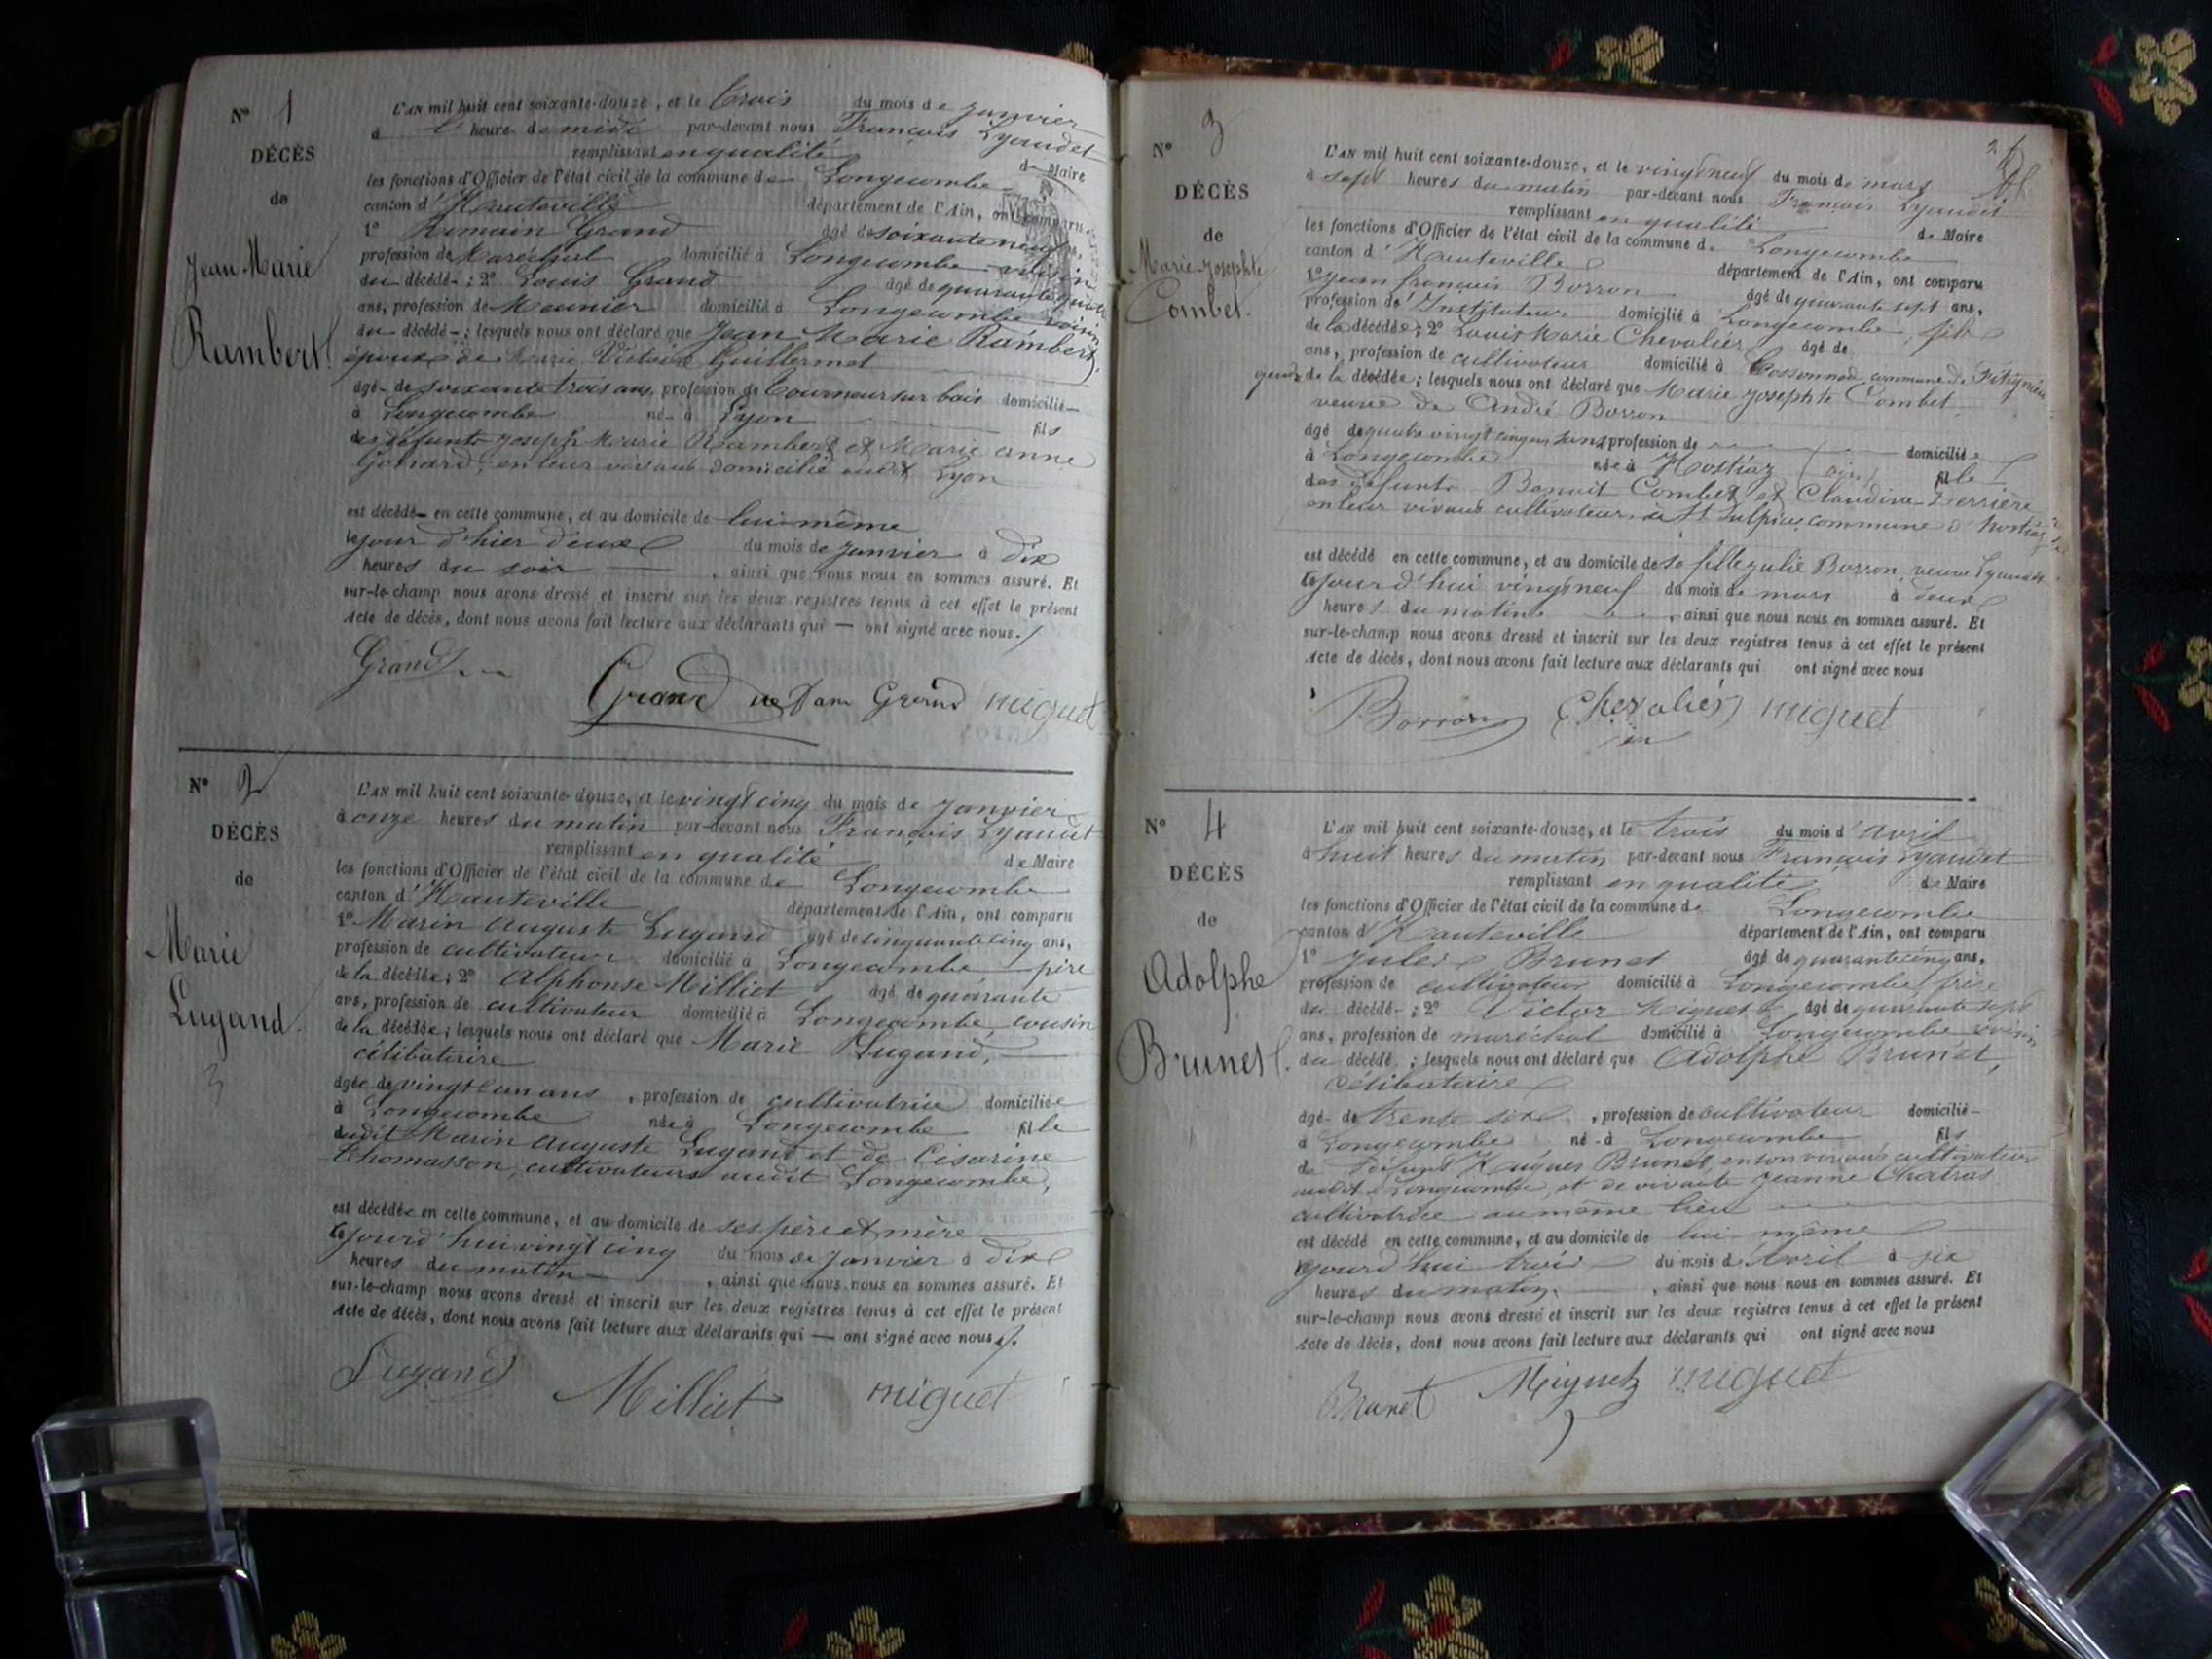 N° 1
DÉCÈS
de
Jean Marie
Rambert
L'AN mil huit cent soixante-douze, et le trois du mois de janvier
à heure de midi par-devant nous François Lyaudet
remplissant en qualité de Maire
les fonctions d'Officier de l'état civil de la commune de Longecombe
canton d'Hauteville département de l'Ain, ont comparu
1° Romain Grand âgé de soixante neuf
profession de Maréchal domicilié à Longecombe voisin
du décédé- ; 2° Louis Grand âgé de quarante quatre
ans, profession de Meunier domicilié à Longecombe voisin
du décédé- ; lesquels nous ont déclaré que Jean Marie Rambert,
époux de Marie Victoire Guillermet
âgé- de soixante trois ans, profession de Tourneur sur bois domicilié-
à Longecombe né- à Lyon fils
des défunts Joseph Marie Rambert et Marie Anne
Gonard, en leur vivant domicilié audit Lyon
est décédé- en cette commune, et au domicile de lui même
le jour d'hier deux du mois de janvier à dix
heures du soir, ainsi que nous nous en sommes assuré. Et
sur-le-champ nous avons dressé et inscrit sur les deux registres tenus à cet effet le présent
Acte de décès, dont nous avons fait lecture aux déclarants qui — ont signé avec nous.
Grand
Grand Grand miguet
N° 2
DÉCÈS
de
Marie
Lugand.
3
L'AN mil huit cent soixante-douze, et le vingt cinq du mois de Janvier
à onze heures du matin par-devant nous François Lyaudet
remplissant en qualité de Maire
les fonctions d'Officier de l'état civil de la commune de Longecombe
canton d'Hauteville département de l'Ain, ont comparu
1° Marin Auguste Lugand âgé de cinquante cinq ans,
profession de cultivateur domicilié à Longecombe père
de la décédée; 2° Alphonse Milliet âgé de quarante
ans, profession de cultivateur domicilié à Longecombe, cousin
de la décédée; lesquels nous ont déclaré que Marie Lugand,
célibataire
âgée de vingt un ans, profession de cultivatrice domiciliée
à Longecombe née à Longecombe fille
dudit Marin Auguste Lugand et de Césarine
Thomasson, cultivateurs audit Longecombe,
est décédée en cette commune, et au domicile de ses père et mère
le jourd'hui vingt cinq du mois de janvier à dix
heures du matin, ainsi que nous nous en sommes assuré. Et
sur-le-champ nous avons dressé et inscrit sur les deux registres tenus à cet effet le présent
Acte de décès, dont nous avons fait lecture aux déclarants qui — ont signé avec nous.
Lugand Milliet miguet
N° 3
DÉCÈS
de
Marie-Josephte
Combet.
L'AN mil huit cent soixante-douze, et le vingt neuf du mois de mars
à sept heures du matin par-devant nous François Lyaudet
remplissant en qualité de Maire
les fonctions d'Officier de l'état civil de la commune de Longecombe
canton d'Hauteville département de l'Ain, ont comparu
1° Jean françois Borron âgé de quarante sept ans,
profession d'Instituteur domicilié à Longecombe, fils
de la décédée; 2° Louis Marie Chevalier âgé de
ans, profession de cultivateur domicilié à Cossonnod commune de
gendre de la décédée; lesquels nous ont déclaré que Marie Josephte Combet
veuve de André Borron
âgé de quatre vingt cinq ans sans profession de domiciliée
à Longecombe née à Hostiaz (ain) fille
des défunts Benoit Combet et Claudine Derrière
en leur vivant cultivateurs à St Sulpice commune d'hostiaz
est décédé en cette commune, et au domicile de sa fille Julie Borron, veuve Lyaudet
le jourd'hui vingt neuf du mois de mars à deux
heures du matin, ainsi que nous nous en sommes assuré. Et
sur-le-champ nous avons dressé et inscrit sur les deux registres tenus à cet effet le présent
Acte de décès, dont nous avons fait lecture aux déclarants qui ont signé avec nous
Borron Chevalier miguet
N° 4
DÉCÈS
de
Adolphe
Brunet.
L'AN mil huit cent soixante-douze, et le trois du mois d'avril
à huit heures du matin par-devant nous François Lyaudet
remplissant en qualité de Maire
les fonctions d'Officier de l'état civil de la commune de Longecombe
canton d'Hauteville département de l'Ain, ont comparu
1° Jules Brunet âgé de quarante cinq ans,
profession de cultivateur domicilié à Longecombe frère
du décédé- ; 2° Victor Miguet âgé de quarante sept
ans, profession de maréchal domicilié à Longecombe voisin
du décédé ; lesquels nous ont déclaré que Adolphe Brunet,
célibataire
âgé- de trente six, profession de cultivateur domicilié-
à Longecombe né-à Longecombe fils
de défunt Hugues Brunet, en son vivant cultivateur
audit Longecombe, et de vivante Jeanne Chatras
cultivatrice au même lieu
est décédé en cette commune, et au domicile de lui même
le jourd'hui trois du mois d'Avril à six
heures du matin, ainsi que nous nous en sommes assuré. Et
sur-le-champ nous avons dressé et inscrit sur les deux registres tenus à cet effet le présent
Acte de décès, dont nous avons fait lecture aux déclarants qui ont signé avec nous
Brunet Miguet miguet